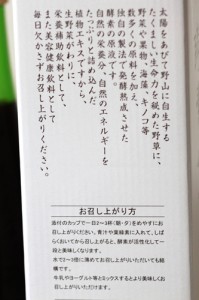 太陽をあびて野山に自生する
たくましい生命力を秘めた野草に、
野菜や果物、海藻、キノコ等
数多くの原料を加え、
独自の製法で発酵熟成させた
酵素の原液です。
自然の栄養分、自然のエネルギーを
たっぷりと詰め込んだ
植物エキスですから、
生野菜がわりに、
栄養補給飲料として、
また美容健康飲料として
毎日欠かさずお召し上がりください。
お召し上がり方
添付のカップで一日2〜3杯(朝・夕)をめやすにお
召し上がりください。青汁や黒酢等に入れて、しば
らくおいてから召し上がると、酵素が活性化して一
段と美味しくなります。
水で2〜3倍に薄めてお召し上がりいただいても結
構です。
牛乳やヨーグルト等とミックスするとより美味しくお
召し上がりいただけます。